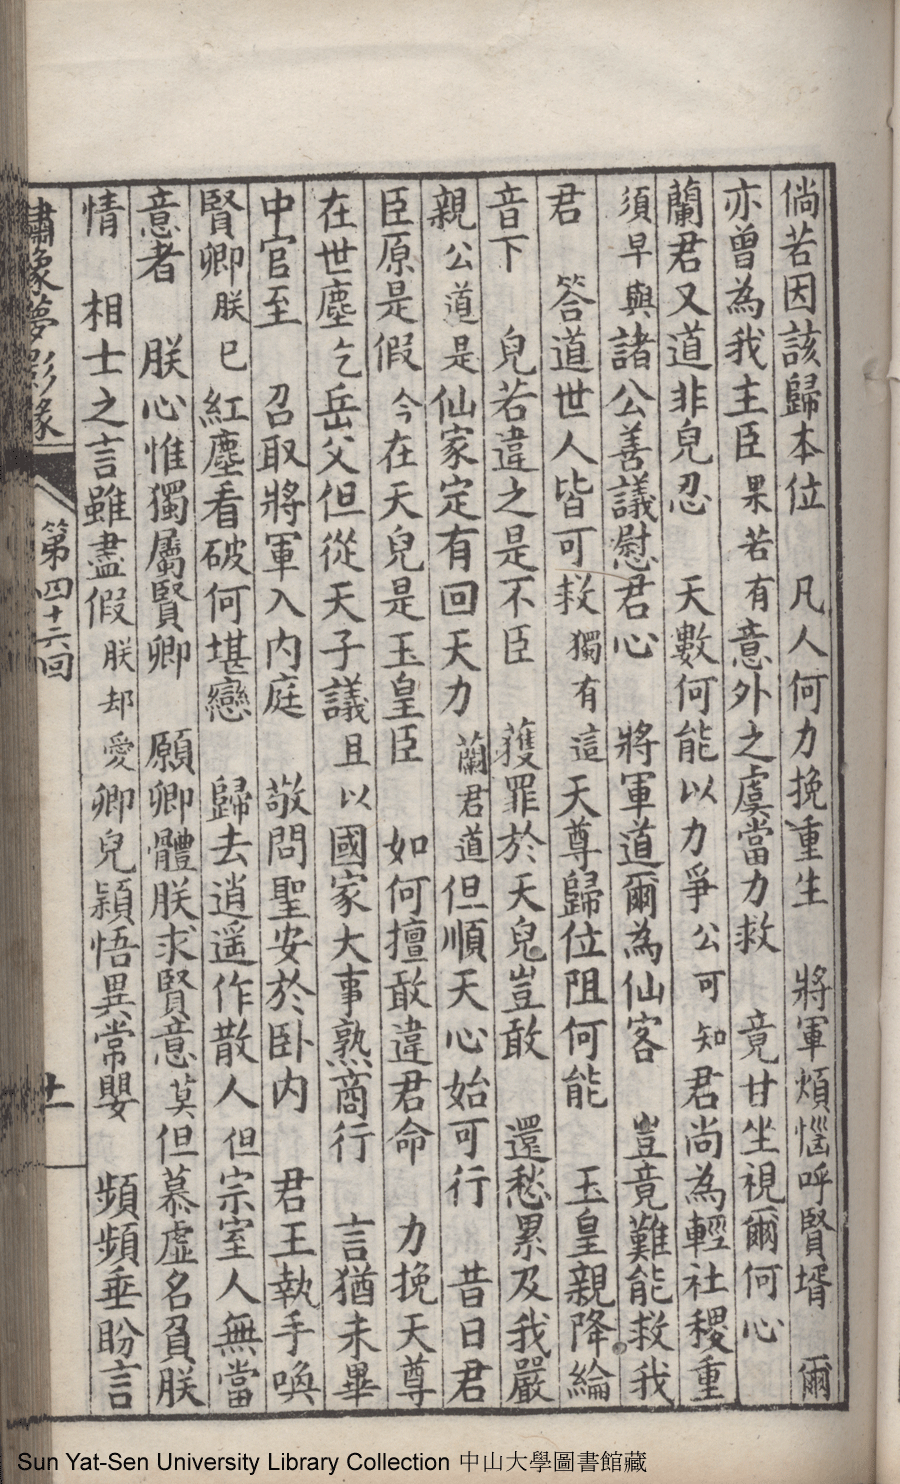 倘若因該歸本位　凡人何力挽重生　將軍煩惱呼賢壻　爾
亦曾為我主臣果若有意外之虞當力救　竟甘坐視爾何心
蘭君又道非兒忍　天數何能以力爭公可知君尚為輕社稷重
須早與諸公善議慰君心　將軍道爾為仙客　豈竟難能救我
君　答道世人皆可救獨有這天尊歸位阻何能　玉皇親降綸
音下　兒若違之是不臣　獲罪於天兒豈敢　還愁累及我嚴
親公道是仙家定有回天力　蘭君道但順天心始可行　昔日君
臣原是假今在天兒是玉皇臣　如何擅敢違君命　力挽天尊
在世塵乞岳父但從天子議且以國家大事熟商行　言猶未畢
中官至　召取將軍入内庭　敬問聖安於卧内　君王執手喚
賢卿朕已紅塵看破何堪戀　歸去逍遥作散人但宗室人無當
意者　朕心惟獨屬賢卿　願卿體朕求賢意莫但慕虛名負朕
情　相士之言雖盡假朕却愛卿兒穎悟異常嬰　頻頻垂盼言
繡像夢影緣
第四十六回
十一
Sun Yat-Sen University Library Collection 中山大學圖書館藏